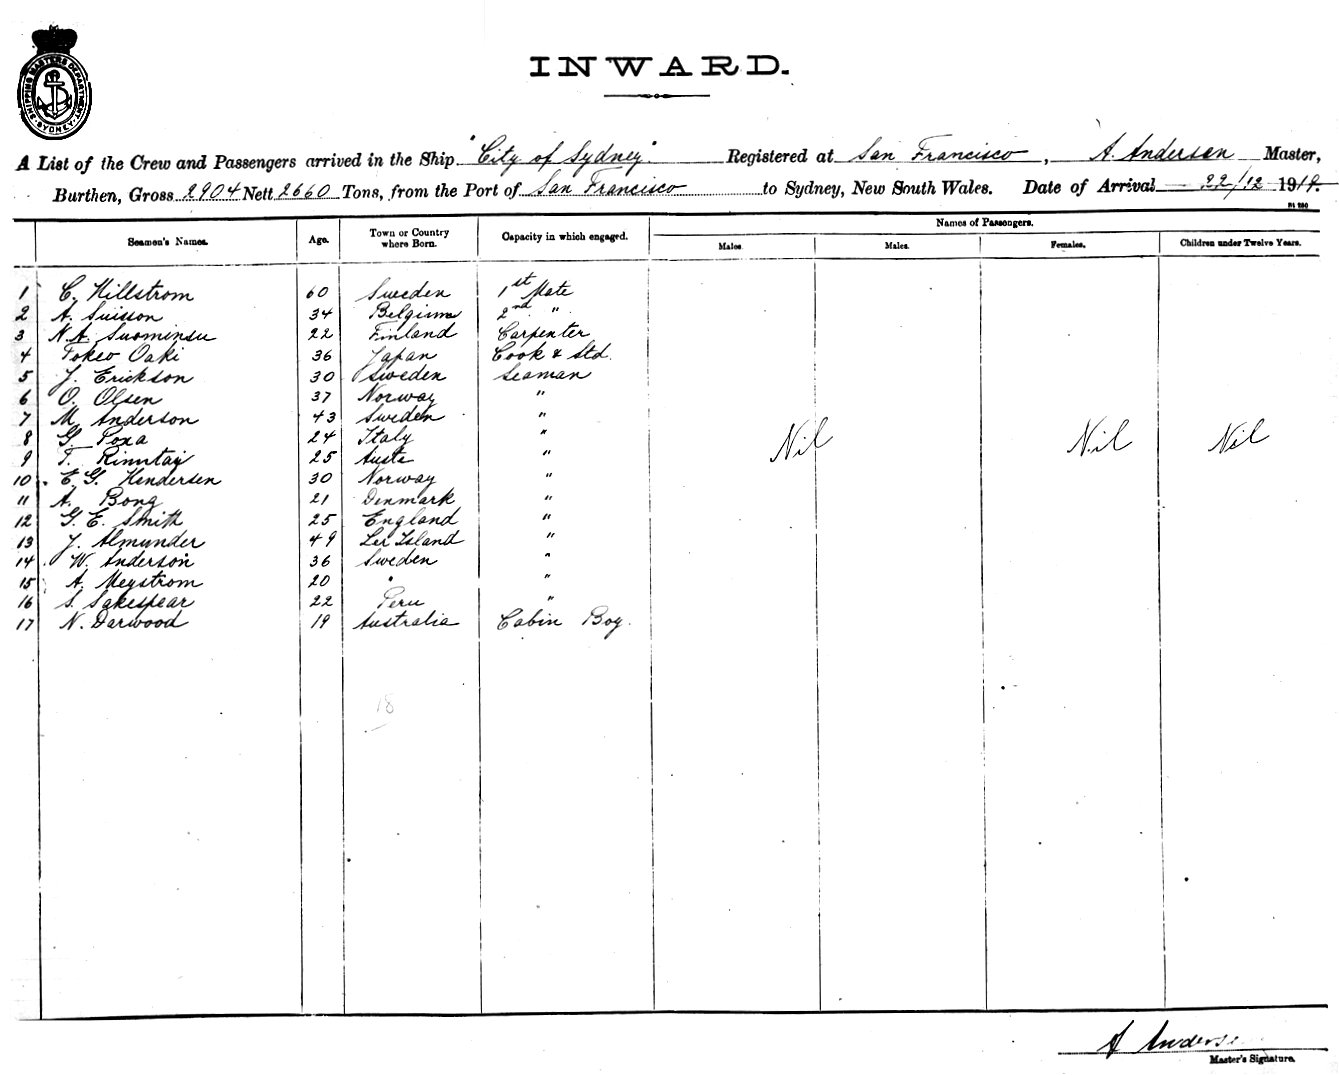 SHIPPING MASTERS DEPARTMENT
SYDNEY
INWARD.
A List of the Crew and Passengers arrived in the Ship "City of Sydney" Registered at San Francisco, A. Andersen Master,
Burthen, Gross 2904 Nett 2660 Tons, from the Port of San Francisco to Sydney, New South Wales. Date of Arrival 22/12 1919.
Seamen's Names. Age. Town or Country where Born. Capacity in which engaged. Names of Passengers.
Males. Males. Females. Children under Twelve Years.
1 C. Hillstrom 60 Sweden 1st Mate
2 A. Suisson 34 Belgium 2nd "
3 N.A. Suominsu 22 Finland Carpenter
4 Tokeo Oaki 36 Japan Cook & Std.
5 J. Erickson 30 Sweden Seaman
6 O. Olsen 37 Norway "
7 M. Anderson 43 Sweden "
8 G. Poxa 24 Italy "
9 T. 25 Auste "
10 E. G. Hendersen 30 Norway "
11 A. Bong 21 Denmark "
12 G. E. Smith 25 England "
13 J. Almunder 49 Island "
14 W. Anderson 36 Sweden "
15 A. Megstrom 20 " "
16 S. Sakespear 22 Peru "
17 N. Darwood 19 Australia Cabin Boy.
Nil Nil Nil
18
A Anderse
Master's Signature.